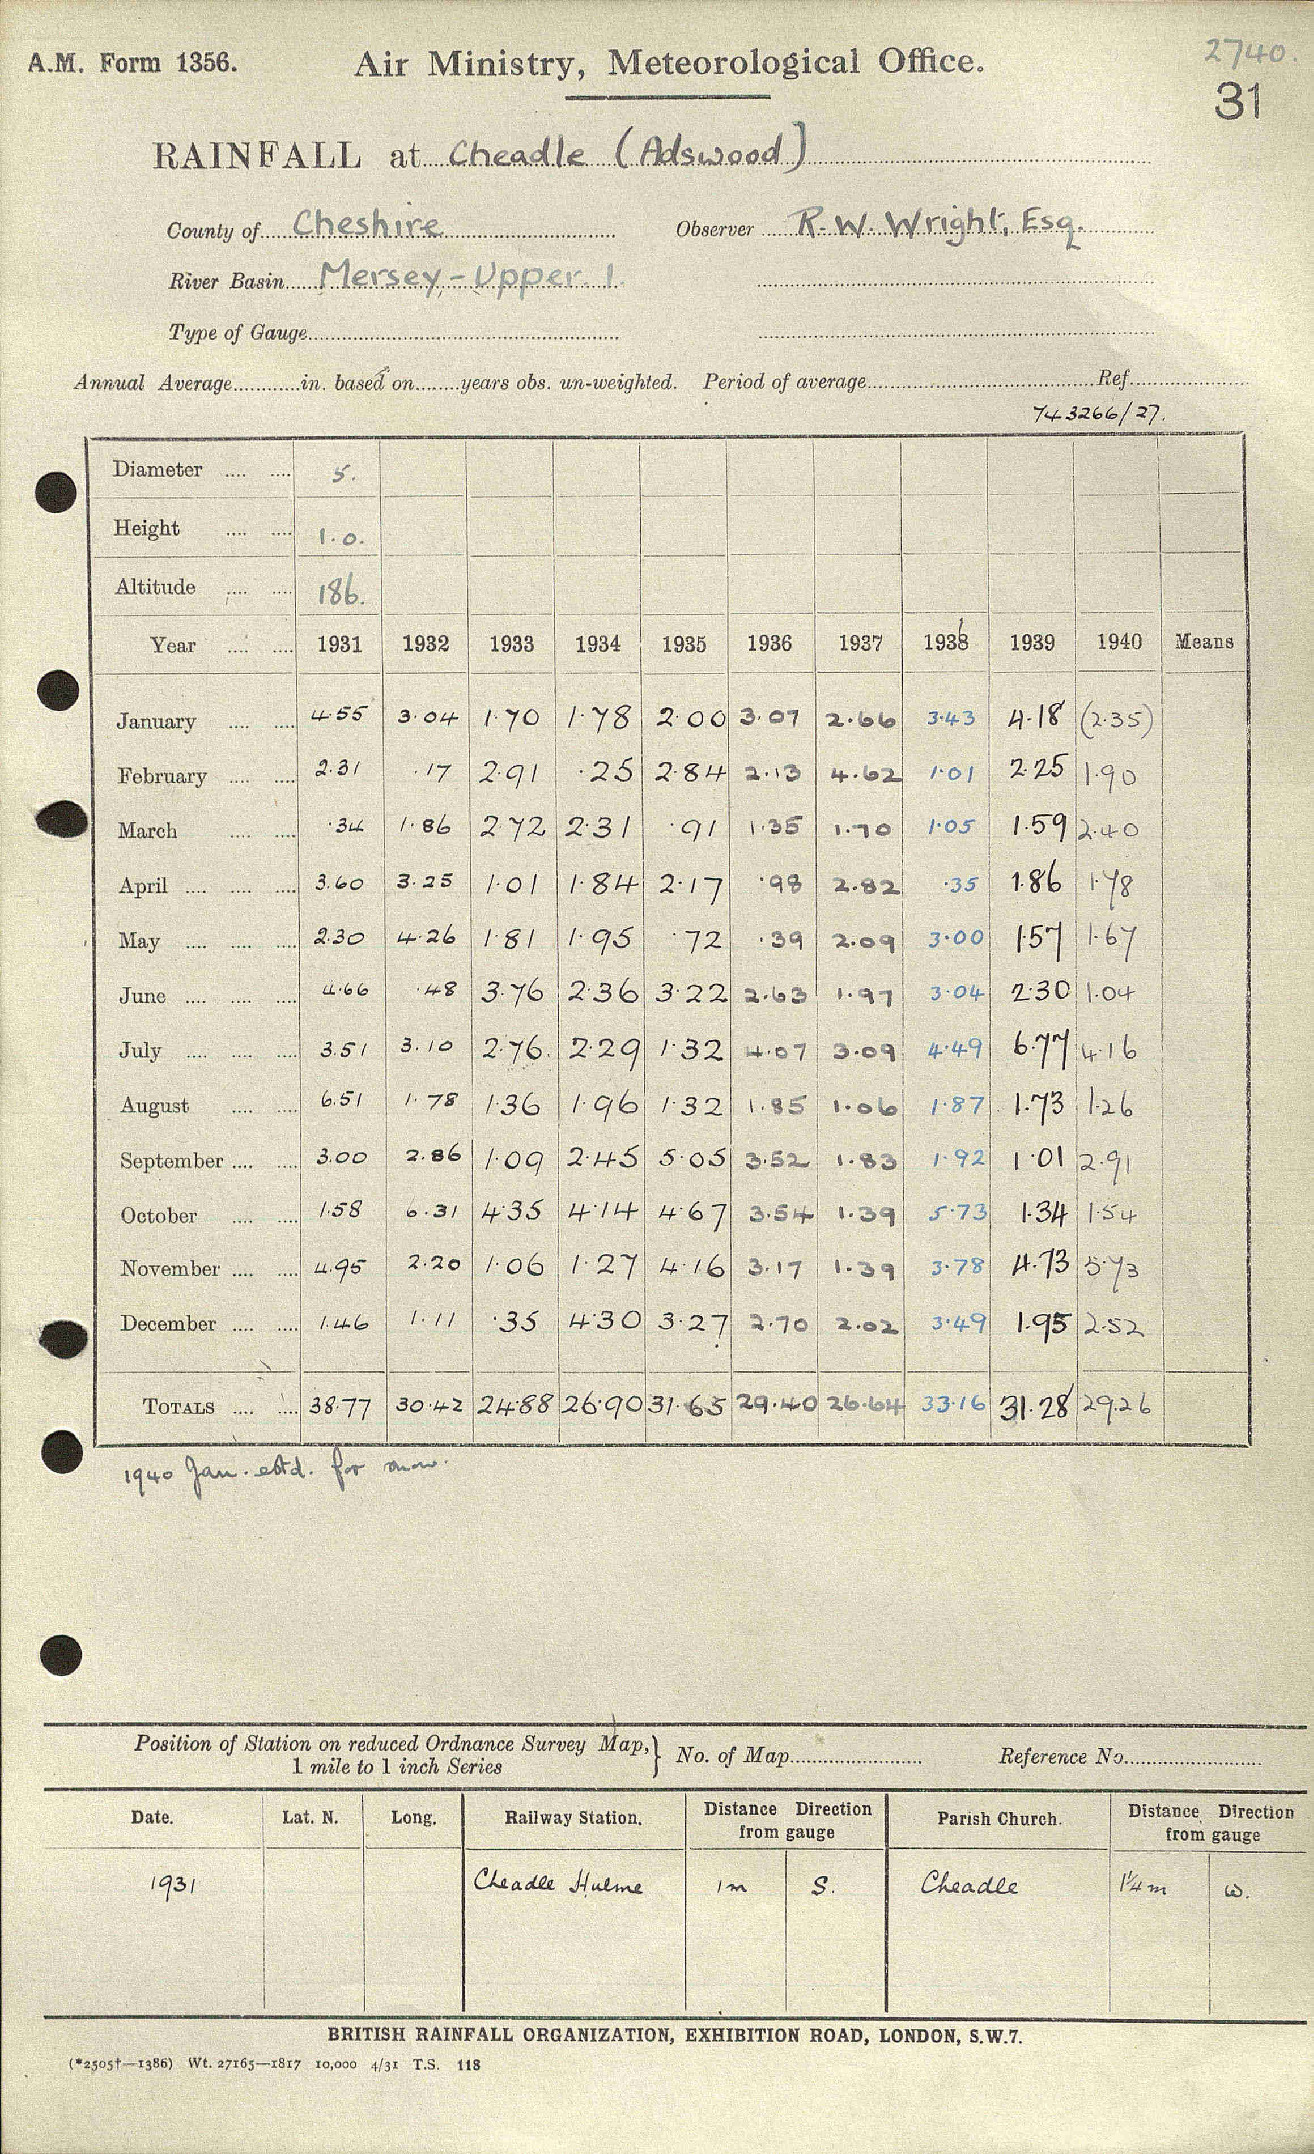 A.M. Form 1356.
Air Ministry, Meteorological Office.
2740.
31
RAINFALL at Cheadle (Adswood)
County of Cheshire Observer R. W. Wright, Esq.
River Basin Mersey - Upper. 1.
Type of Gauge
Annual Average in. based on years obs. un-weighted. Period of average Ref.
743266/27.
Diameter 5.
Height 1.0.
Altitude 186.
Year 1931 1932 1933 1934 1935 1936 1937 1938 1939 1940 Means
January 4.55 3.04 1.70 1.78 2.00 3.07 2.66 3.43 4.18 (2.35)
February 2.31 .17 2.91 .25 2.84 2.13 4.62 1.01 2.25 1.90
March .34 1.86 2.72 2.31 .91 1.35 1.70 1.05 1.59 2.40
April 3.60 3.25 1.01 1.84 2.17 .98 2.82 .35 1.86 1.78
May 2.30 4.26 1.81 1.95 .72 .39 2.09 3.00 1.57 1.67
June 4.66 .48 3.76 2.36 3.22 2.63 1.97 3.04 2.30 1.04
July 3.51 3.10 2.76. 2.29 1.32 4.07 3.09 4.49 6.77 4.16
August 6.51 1.78 1.36 1.96 1.32 1.85 1.06 1.87 1.73 1.26
September 3.00 2.86 1.09 2.45 5.05 3.52 1.83 1.92 1.01 2.91
October 1.58 6.31 4.35 4.14 4.67 3.54 1.39 5.73 1.34 1.54
November 4.95 2.20 1.06 1.27 4.16 3.17 1.39 3.78 4.73 5.73
December 1.46 1.11 .35 4.30 3.27 2.70 2.02 3.49 1.95 2.52
TOTALS 38.77 30.42 24.88 26.90 31.65 29.40 26.64 33.16 31.28 29.26
1940 Jan. estd. for now.
Position of Station on reduced Ordnance Survey Map, 1 mile to 1 inch Series } No. of Map Reference No.
Date. Lat. N. Long. Railway Station. Distance Direction from gauge Parish Church. Distance Direction from gauge
1931 Cheadle Hulme 1m S. Cheadle 1¼m W.
BRITISH RAINFALL ORGANIZATION, EXHIBITION ROAD, LONDON, S.W.7.
(*2505†—1386) Wt. 27165—1817 10,000 4/31 T.S. 118